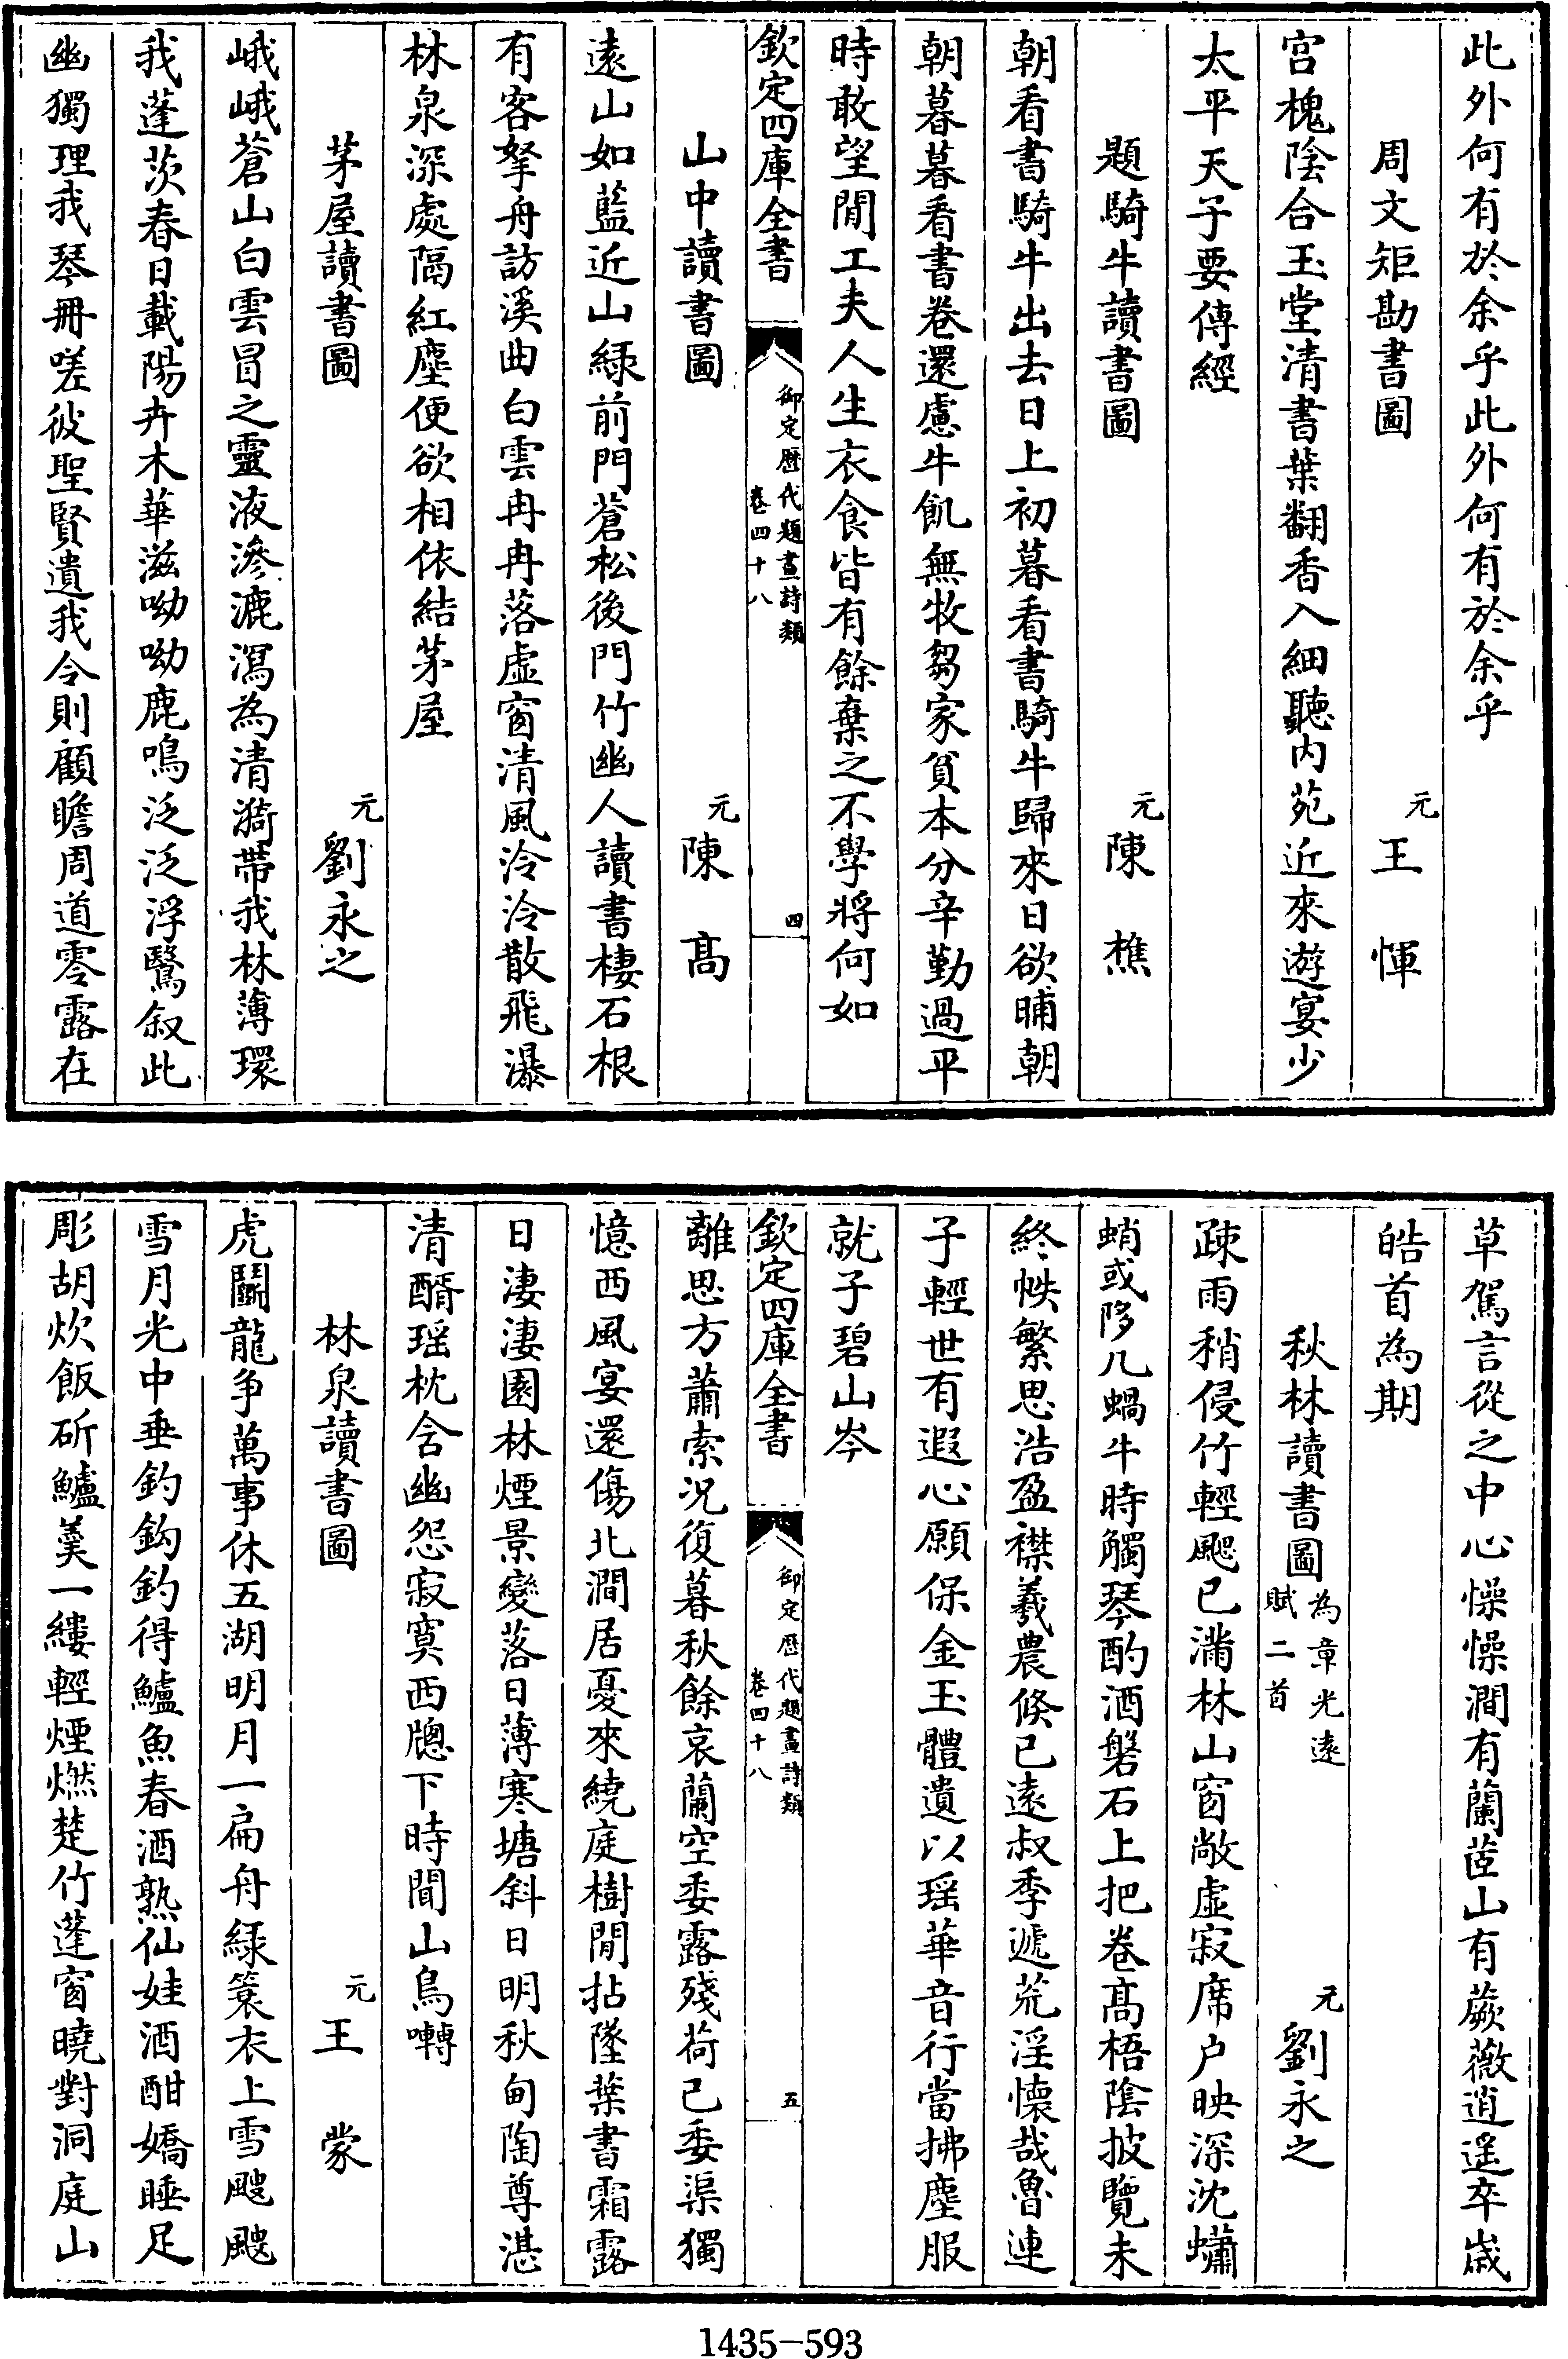 此外何有於余乎此外何有於余乎
周文矩勘書圖
元王惲
宫槐陰合玉堂清書葉翻香入細聽内苑近來遊宴少
太平天子要傳經
題騎牛讀書圖
元陳樵
朝看書騎牛出去日上初暮看書騎牛歸來日欲晡朝
朝暮暮看書卷還慮牛飢無牧芻家貧本分辛勤過平
時敢望閒工夫人生衣食皆有餘棄之不學將何如
欽定四庫全書
御定歷代題畫詩類
卷四十八
四
山中讀書圖
元陳高
遠山如藍近山緑前門蒼松後門竹幽人讀書棲石根
有客拏舟訪溪曲白雲冉冉落虚窗清風泠泠散飛瀑
林泉深處隔紅塵便欲相依結茅屋
茅屋讀書圖
元劉永之
峨峨蒼山白雲冒之靈液滲漉瀉為清漪帶我林薄環
我蓬茨春日載陽卉木華滋呦呦鹿鳴泛泛浮鷖叙此
幽獨理我琴冊嗟彼聖賢遺我令則顧瞻周道零露在
草駕言從之中心懆懆澗有蘭茝山有蕨薇逍遥卒嵗
皓首為期
秋林讀書圖
為章光遠
賦二首
元劉永之
疎雨稍侵竹輕颸已滿林山窗敞虚寂席户映深沈蠨
蛸或陊几蝸牛時觸琴酌酒磐石上把卷高梧隂披覽未
終帙繁思浩盈襟羲農倐已遠叔季遞荒淫懷哉魯連
子輕世有遐心願保金玉體遺以瑶華音行當拂塵服
就子碧山岑
欽定四庫全書
御定歷代題畫詩類
卷四十八
五
離思方蕭索況復暮秋餘哀蘭空委露殘荷已委渠獨
憶西風宴還傷北澗居憂來繞庭樹閒拈墜葉書霜露
日淒淒園林煙景變落日薄寒塘斜日明秋甸陶尊湛
清醑瑶枕含幽怨寂寞西牕下時聞山鳥囀
林泉讀書圖
元王蒙
虎鬬龍争萬事休五湖明月一扁舟緑簑衣上雪颼颼
雪月光中垂釣鈎釣得鱸魚春酒熟仙娃酒酣嬌睡足
彫胡炊飯斫鱸羹一縷輕煙燃楚竹蓬窗曉對洞庭山
1435-593